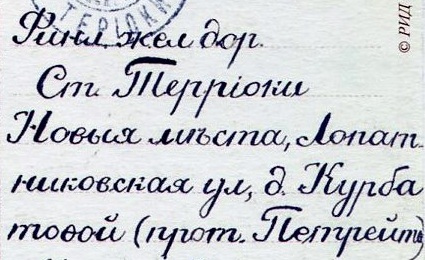 ТЕРІОКИ
© РИД
Финл жел дор.
Ст. Терріоки
Новыя мѣста, Лопат-
никовская ул, д. Курба
товой (прот. Петрейтъ